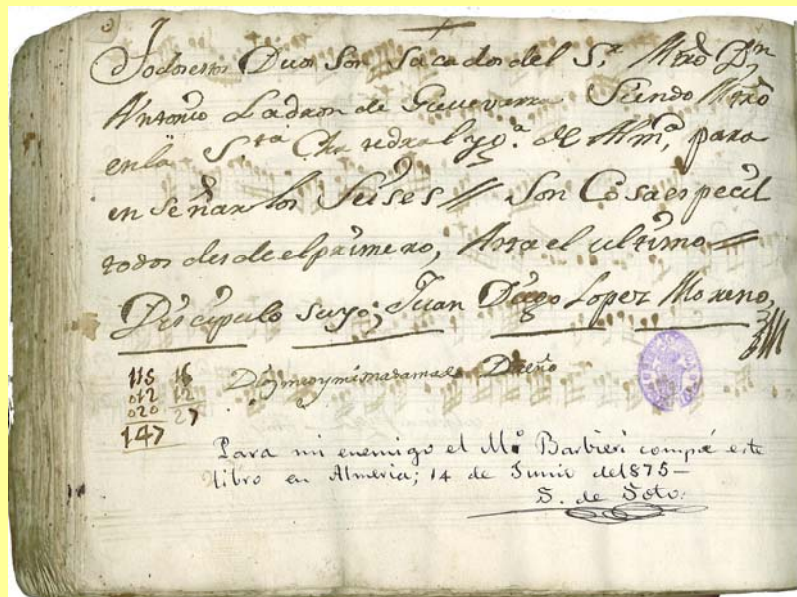 Todos estos Duos Son Sacados del S.r Mrō Dn
Antonio Ladron de Guevarra Siendo Mrō
en la S.ta Chatedral yg.a de Alm.a, para
en señar los Seises // Son Cosa especil
todos desde el primero, Asta el ultimo //
Discipulo suyo; Juan Diego Lopez Moreno,
115 15
012 12
020 27
147
Dueño
Para mi enemigo el Mº Barbieri compré este
libro en Almeria; 14 de Junio del 875—
S. de Soto.